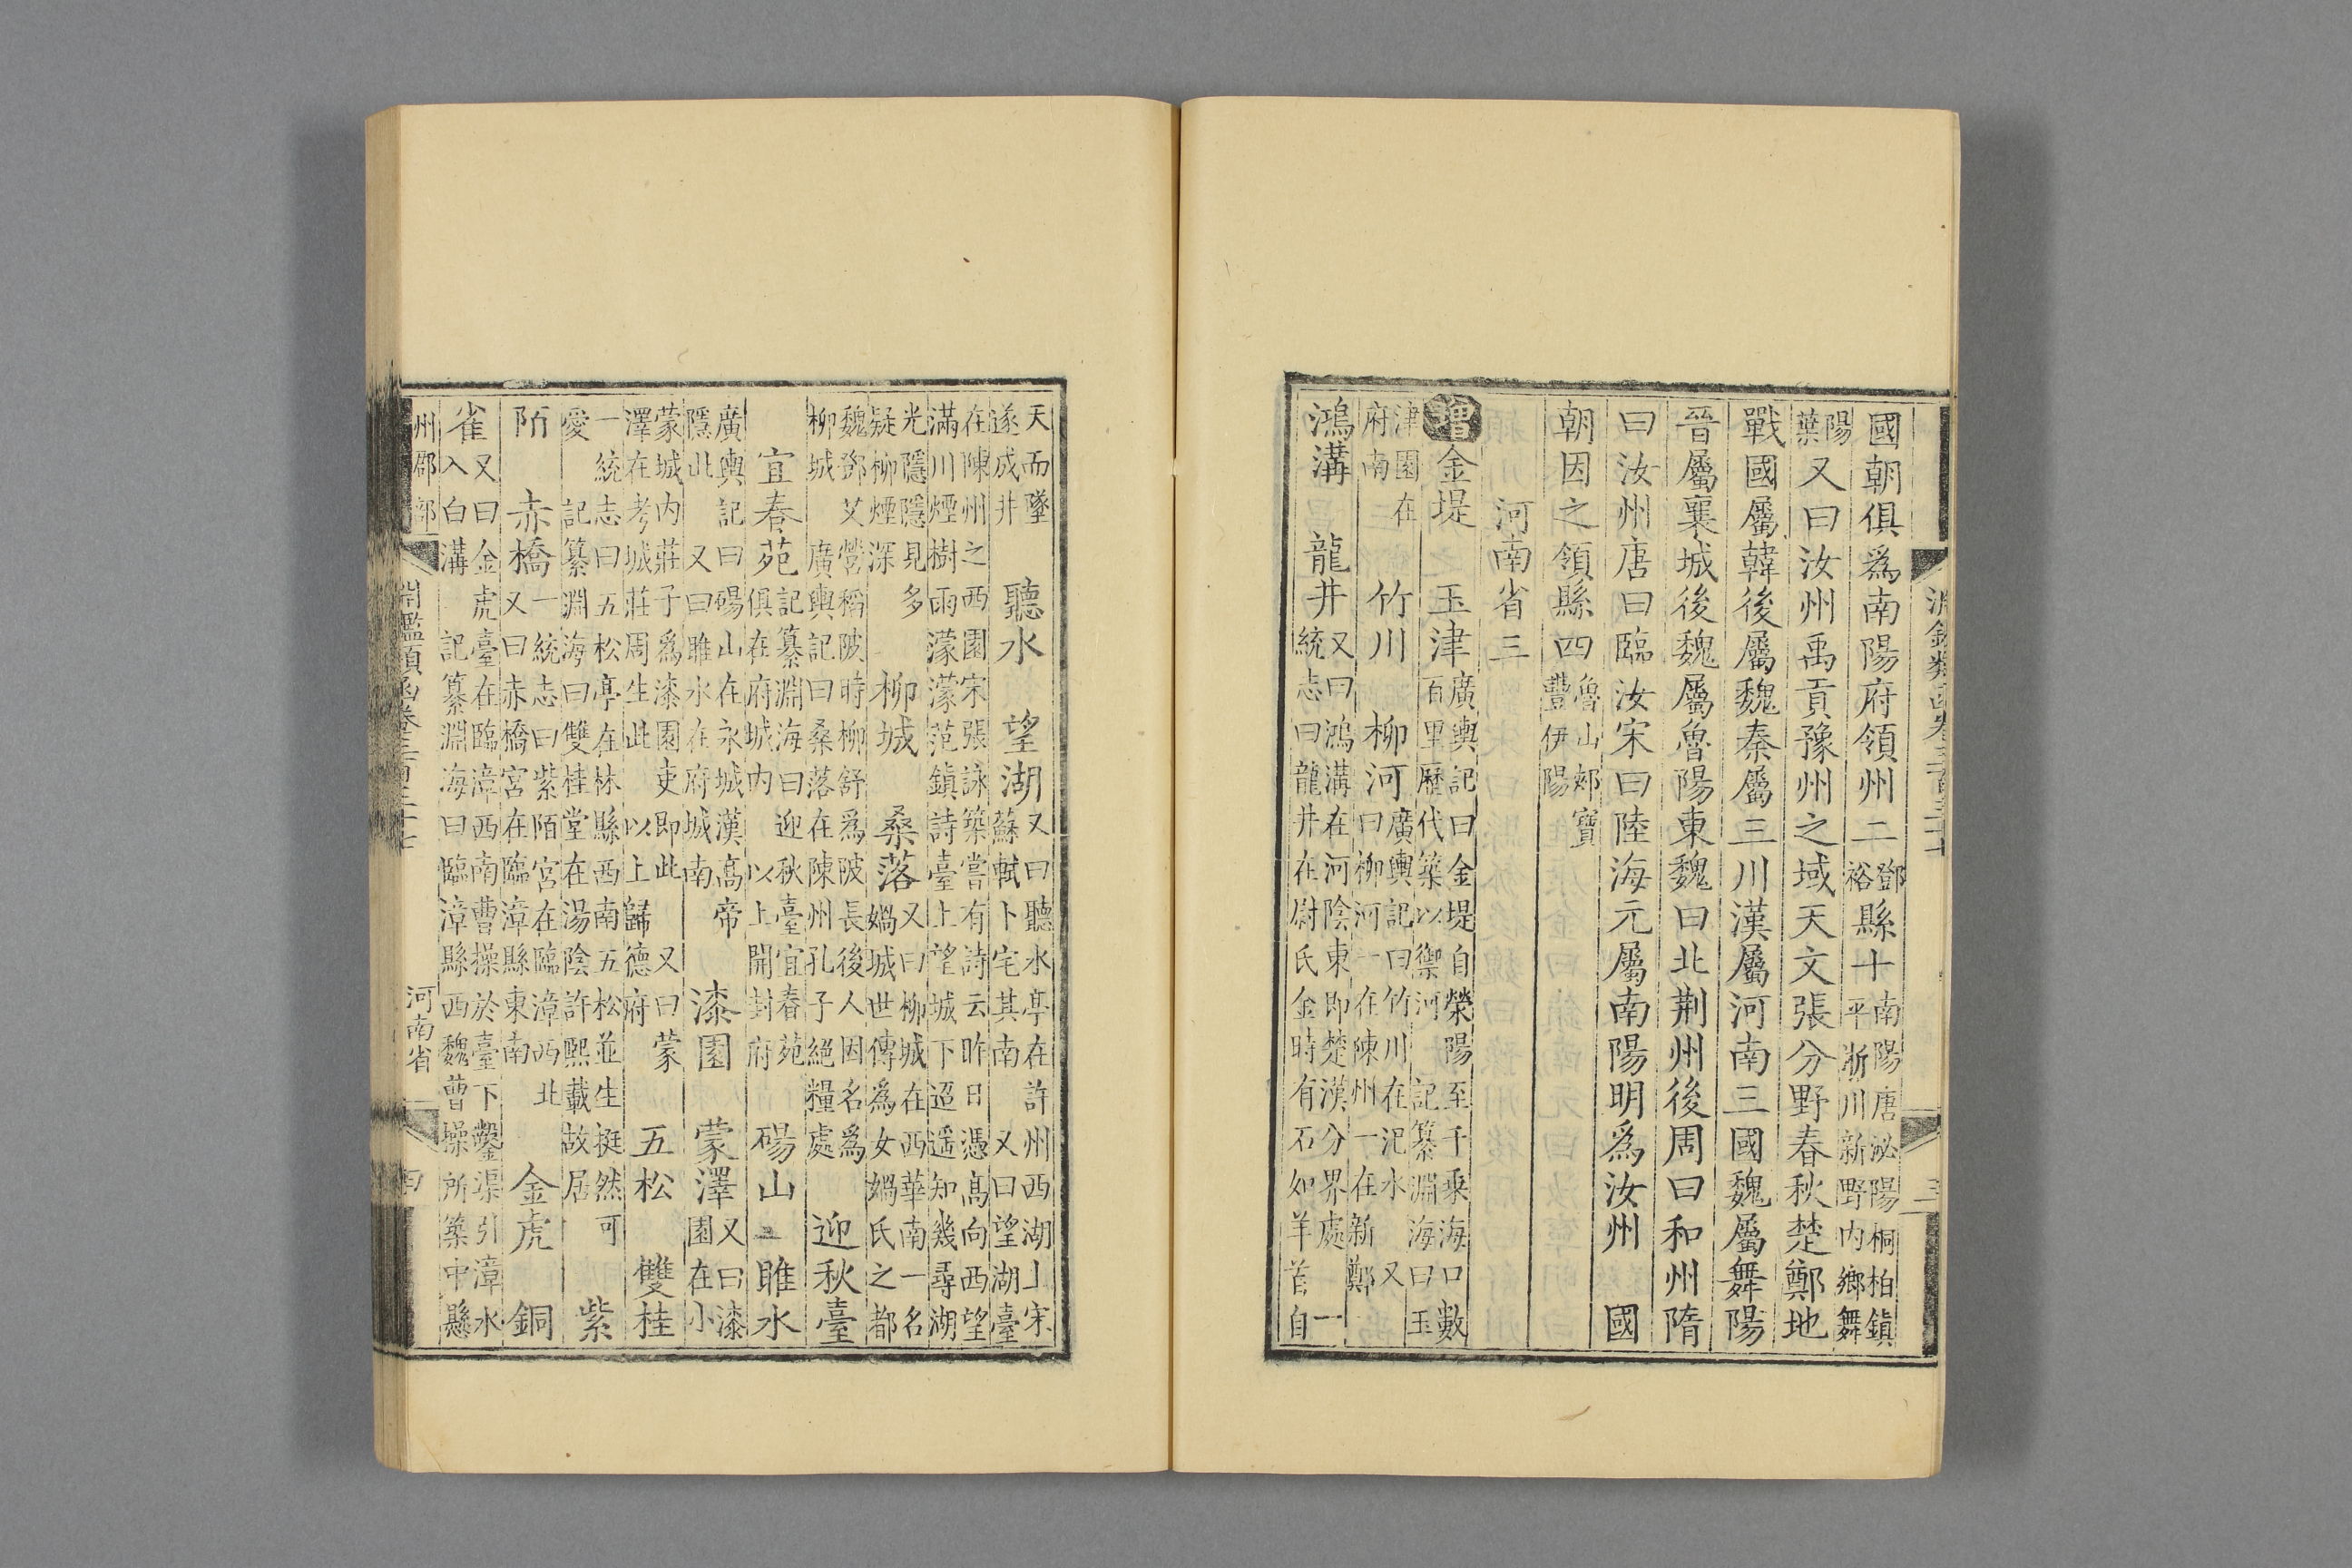 淵鑑類函卷三百三十七 三
國朝俱爲南陽府領州二鄧裕縣十南陽唐泌陽桐柏鎮平淅川新野内鄉舞
陽葉又曰汝州禹貢豫州之域天文張分野春秋楚鄭地
戰國屬韓後屬魏秦屬三川漢屬河南三國魏屬舞陽
晉屬襄城後魏屬魯陽東魏曰北荆州後周曰和州隋
曰汝州唐曰臨汝宋曰陸海元屬南陽明爲汝州 國
朝因之領縣四魯山郟寶豐伊陽
河南省三
增金堤 玉津廣輿記曰金堤自滎陽至千乘海口數百里歷代築以禦河 記纂淵海曰玉
津園在府南 竹川 柳河廣輿記曰竹川在汜水 又曰柳河一在陳州一在新鄭
鴻溝 龍井又曰鴻溝在河陰東即楚漢分界處 一統志曰龍井在尉氏金時有石如羊首自
天而墜遂成井 聽水 望湖又曰聽水亭在許州西湖上宋蘇軾卜宅其南 又曰望湖臺
在陳州之西園宋張詠築嘗有詩云昨日憑高向西望滿川煙樹雨濛濛范鎮詩臺上望城下迢遥知幾尋湖
光隱隱見多疑柳煙深 柳城 桑落又曰柳城在西華南一名媧城世傳爲女媧氏之都
魏鄧艾營稻陂時柳舒爲陂長後人因名爲柳城 廣輿記曰桑落在陳州孔子絕糧處 迎秋臺
宜春苑記纂淵海曰迎秋臺宜春苑俱在府城内 以上開封府 碭山 睢水
廣輿記曰碭山在永城漢高帝隱此 又曰睢水在府城南 漆園 蒙澤又曰漆園在小
蒙城内莊子爲漆園吏即此 又曰蒙澤在考城莊周生此 以上歸德府 五松 雙桂
一統志曰五松亭在林縣西南五松並生挺然可愛 記纂淵海曰雙桂堂在湯陰許熙載故居 紫
陌 赤橋一統志曰紫陌宮在臨漳西北又曰赤橋宮在臨漳縣東南 金虎 銅
雀又曰金虎臺在臨漳西南曹操於臺下鑿渠引漳水入白溝 記纂淵海曰臨漳縣西魏曹操所築中懸
州郡部 淵鑑類函卷三百三十七 河南省